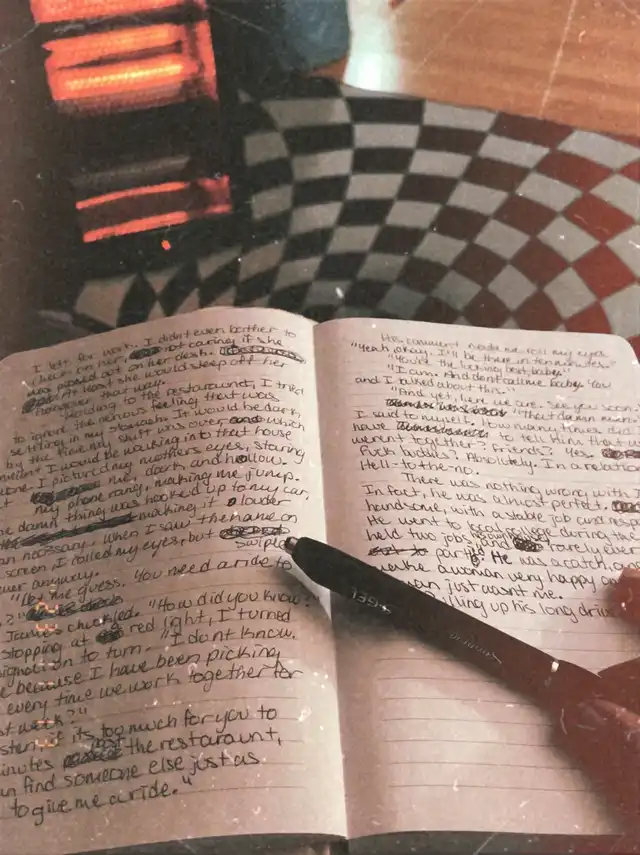 I left for work. I didn't even bother to
check on her, not caring if she
was passed out on her desk.
At least she would sleep off her
hangover that way.
Heading to the restaraunt, I tried
to ignore the nervous feeling that was
settling in my stomach. It would be dark
by the time my shift was over which
meant I would be walking into that house
alone. I pictured my mothers eyes, staring
at me, dark and hollow.
My phone rang, making me jump.
The damn thing was hooked up to my car,
making it louder
than necessary. When I saw the name on
screen, I rolled my eyes, but
swiped
answer anyway.
"Let me guess. You need a ride to
?"
James chuckled. "How did you know?"
Stopping at red light, I turned
signal on to turn. "I dont know.
because I have been picking
every time we work together for
last week?"
if its too much for you to
minutes the restaraunt,
can find someone else just as
to give me a ride."
His comment made me roll my eyes.
"Yeah okay. I'll be there in ten minutes."
"You're the fucking best, baby."
"I am. And dont call me baby. You
and I talked about this."
"And yet, here we are. See you soon."
"That damn man."
I said to myself. How many times did I
have to tell him that
werent together? Friends? Yes.
Fuck buddies? Absolutely. In a relation
Hell-to-the-no.
There was nothing wrong with
In fact, he was almost perfect.
handsome, with a stable job and
He went to local college during the
held two jobs, and rarely ever
partied. He was a catch, and
make a woman very happy one
woman just wasnt me.
Pulling up his long drive
GEL